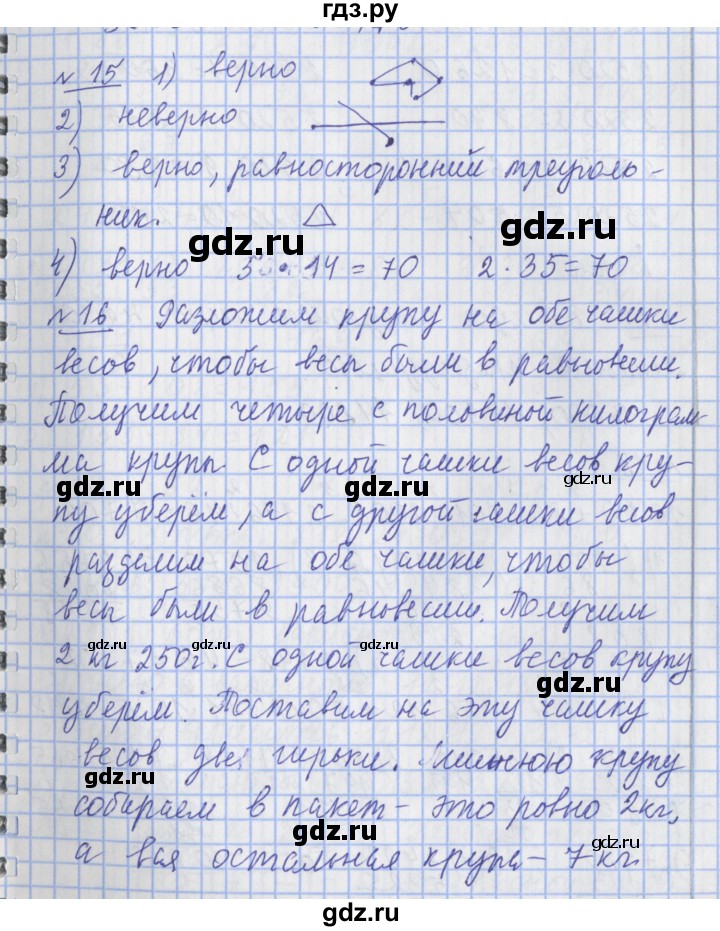 гдз.ру
№ 15 1) верно
2) неверно
3) верно, равносторонний треуголь-
ник.
gdz.ru gdz.ru
4) верно 5 · 14 = 70 2 · 35 = 70
№ 16 Разложим крупу на обе чашки
весов, чтобы весы были в равновесии.
Получим четыре с половиной килограм-
ма крупы С одной чашки весов кру-
gdz.ru gdz.ru gdz.ru
пу уберём, а с другой чашки весов
разделим на обе чашки, чтобы
весы были в равновесии. Получим
gdz.ru gdz.ru gdz.ru
2 кг 250г. С одной чашки весов крупу
gdz.ru
уберём. Поставим на эту чашку
весов две гирьки. Лишнюю крупу
gdz.ru gdz.ru
собираем в пакет – это ровно 2кг,
gdz.ru gdz.ru
а вся остальная крупа – 7 кг.
gdz.ru